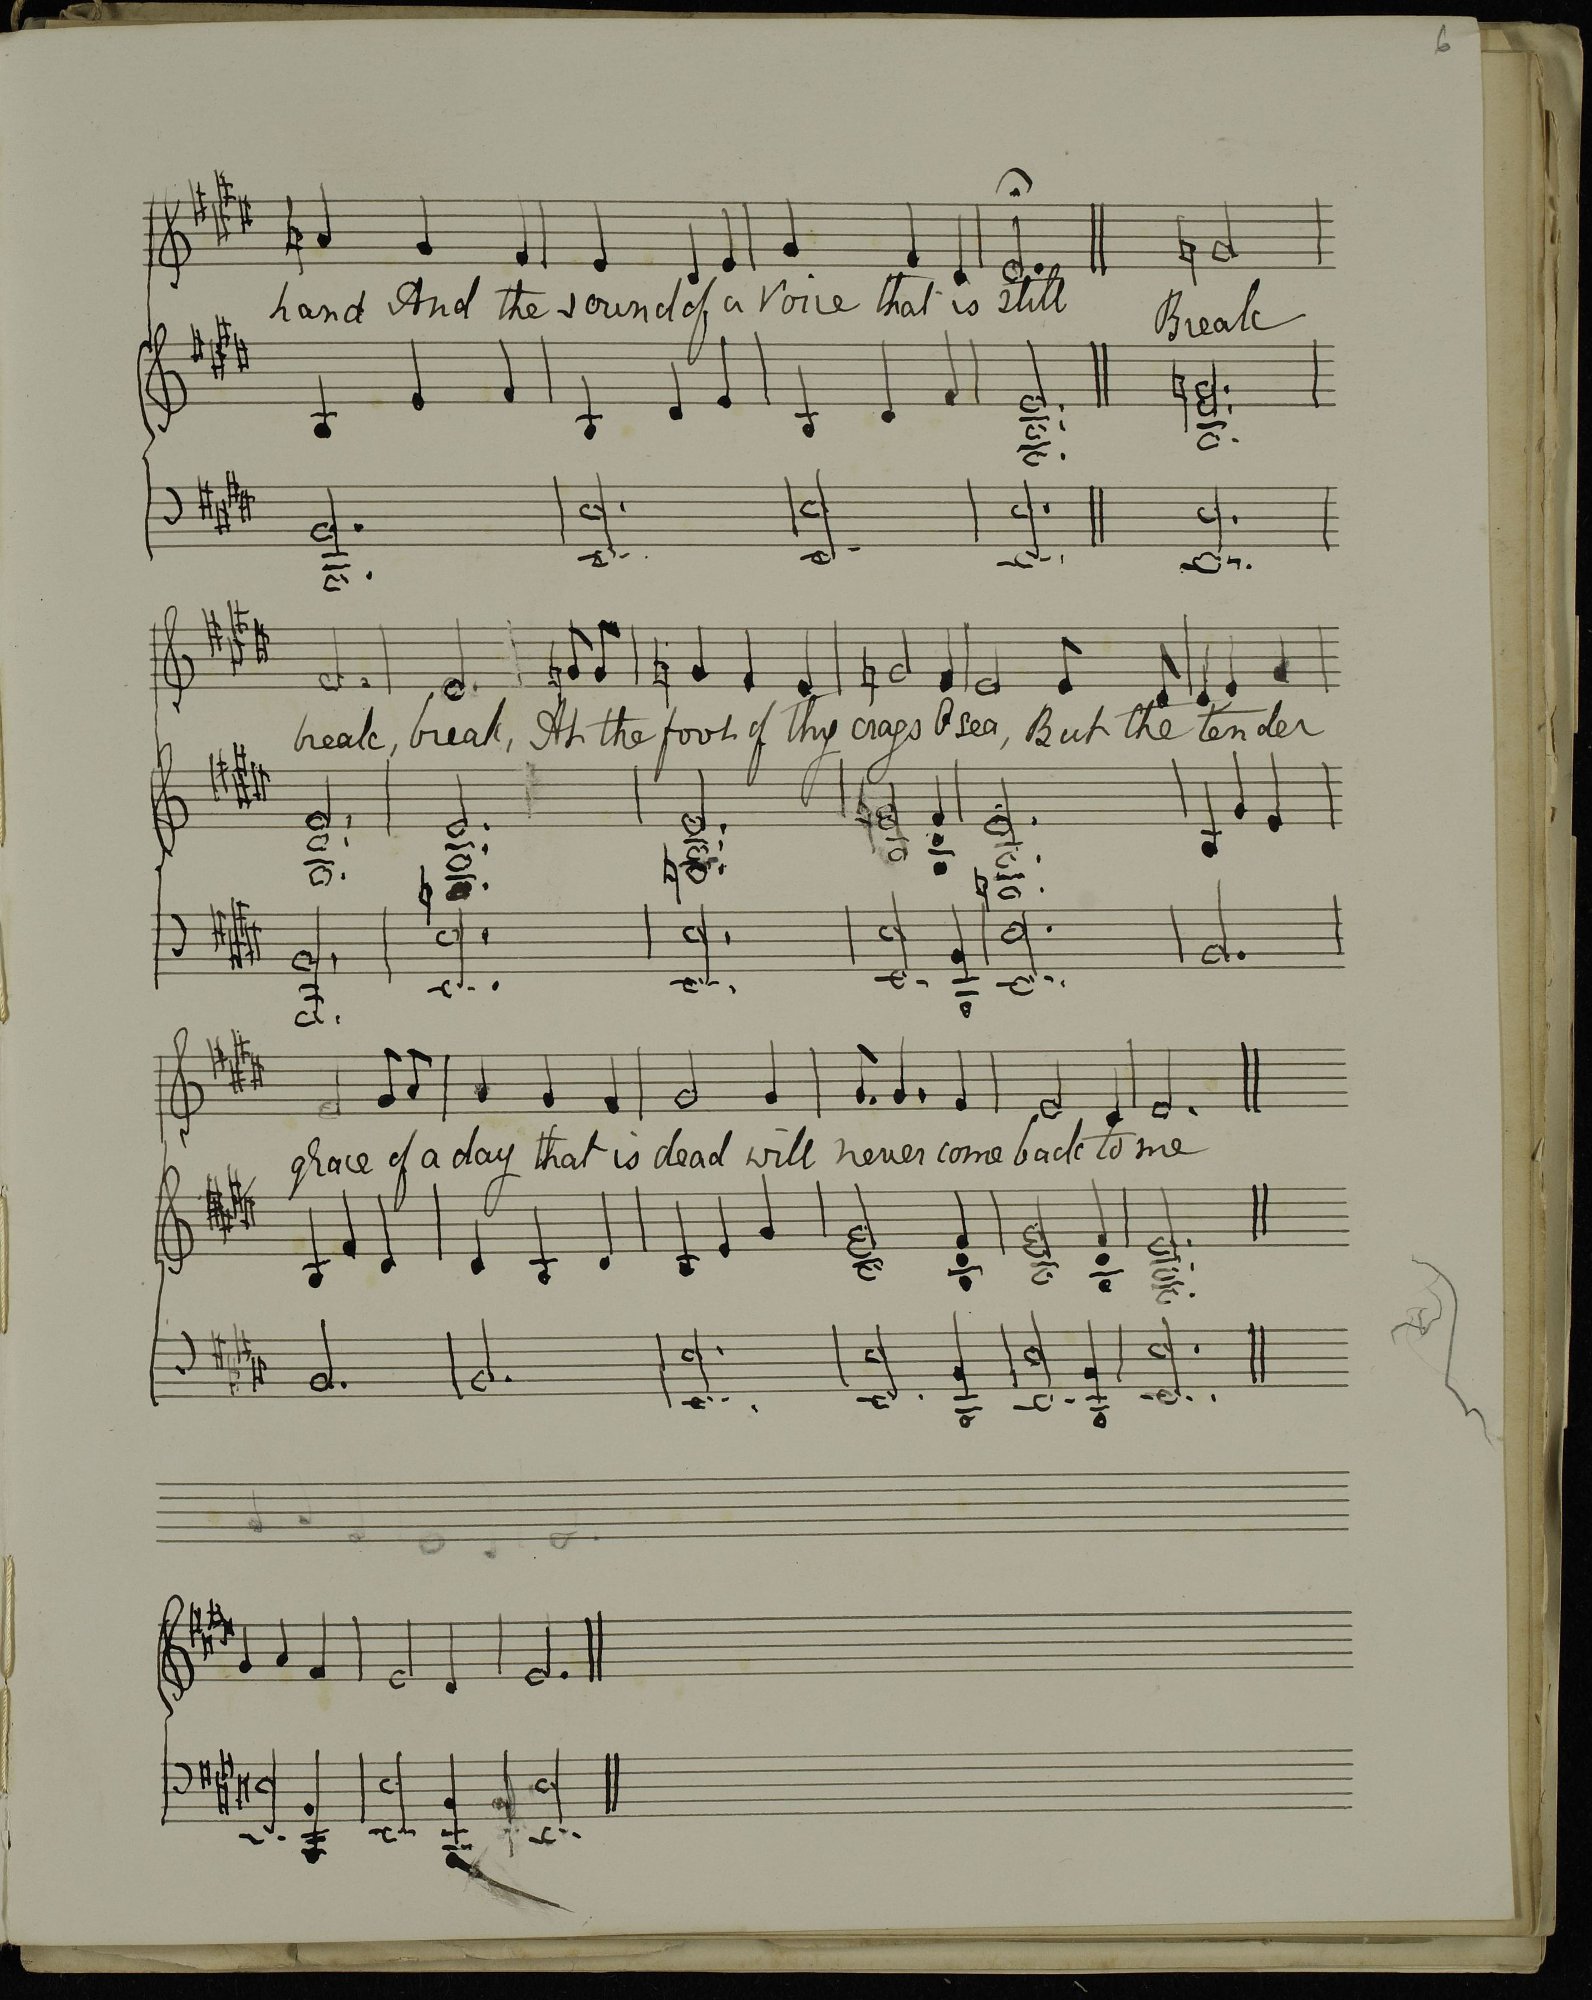 6
hand And the sound of a Voice that is still Break
break, break, At the foot of thy crags O sea, But the tender
grace of a day that is dead will never come back to me